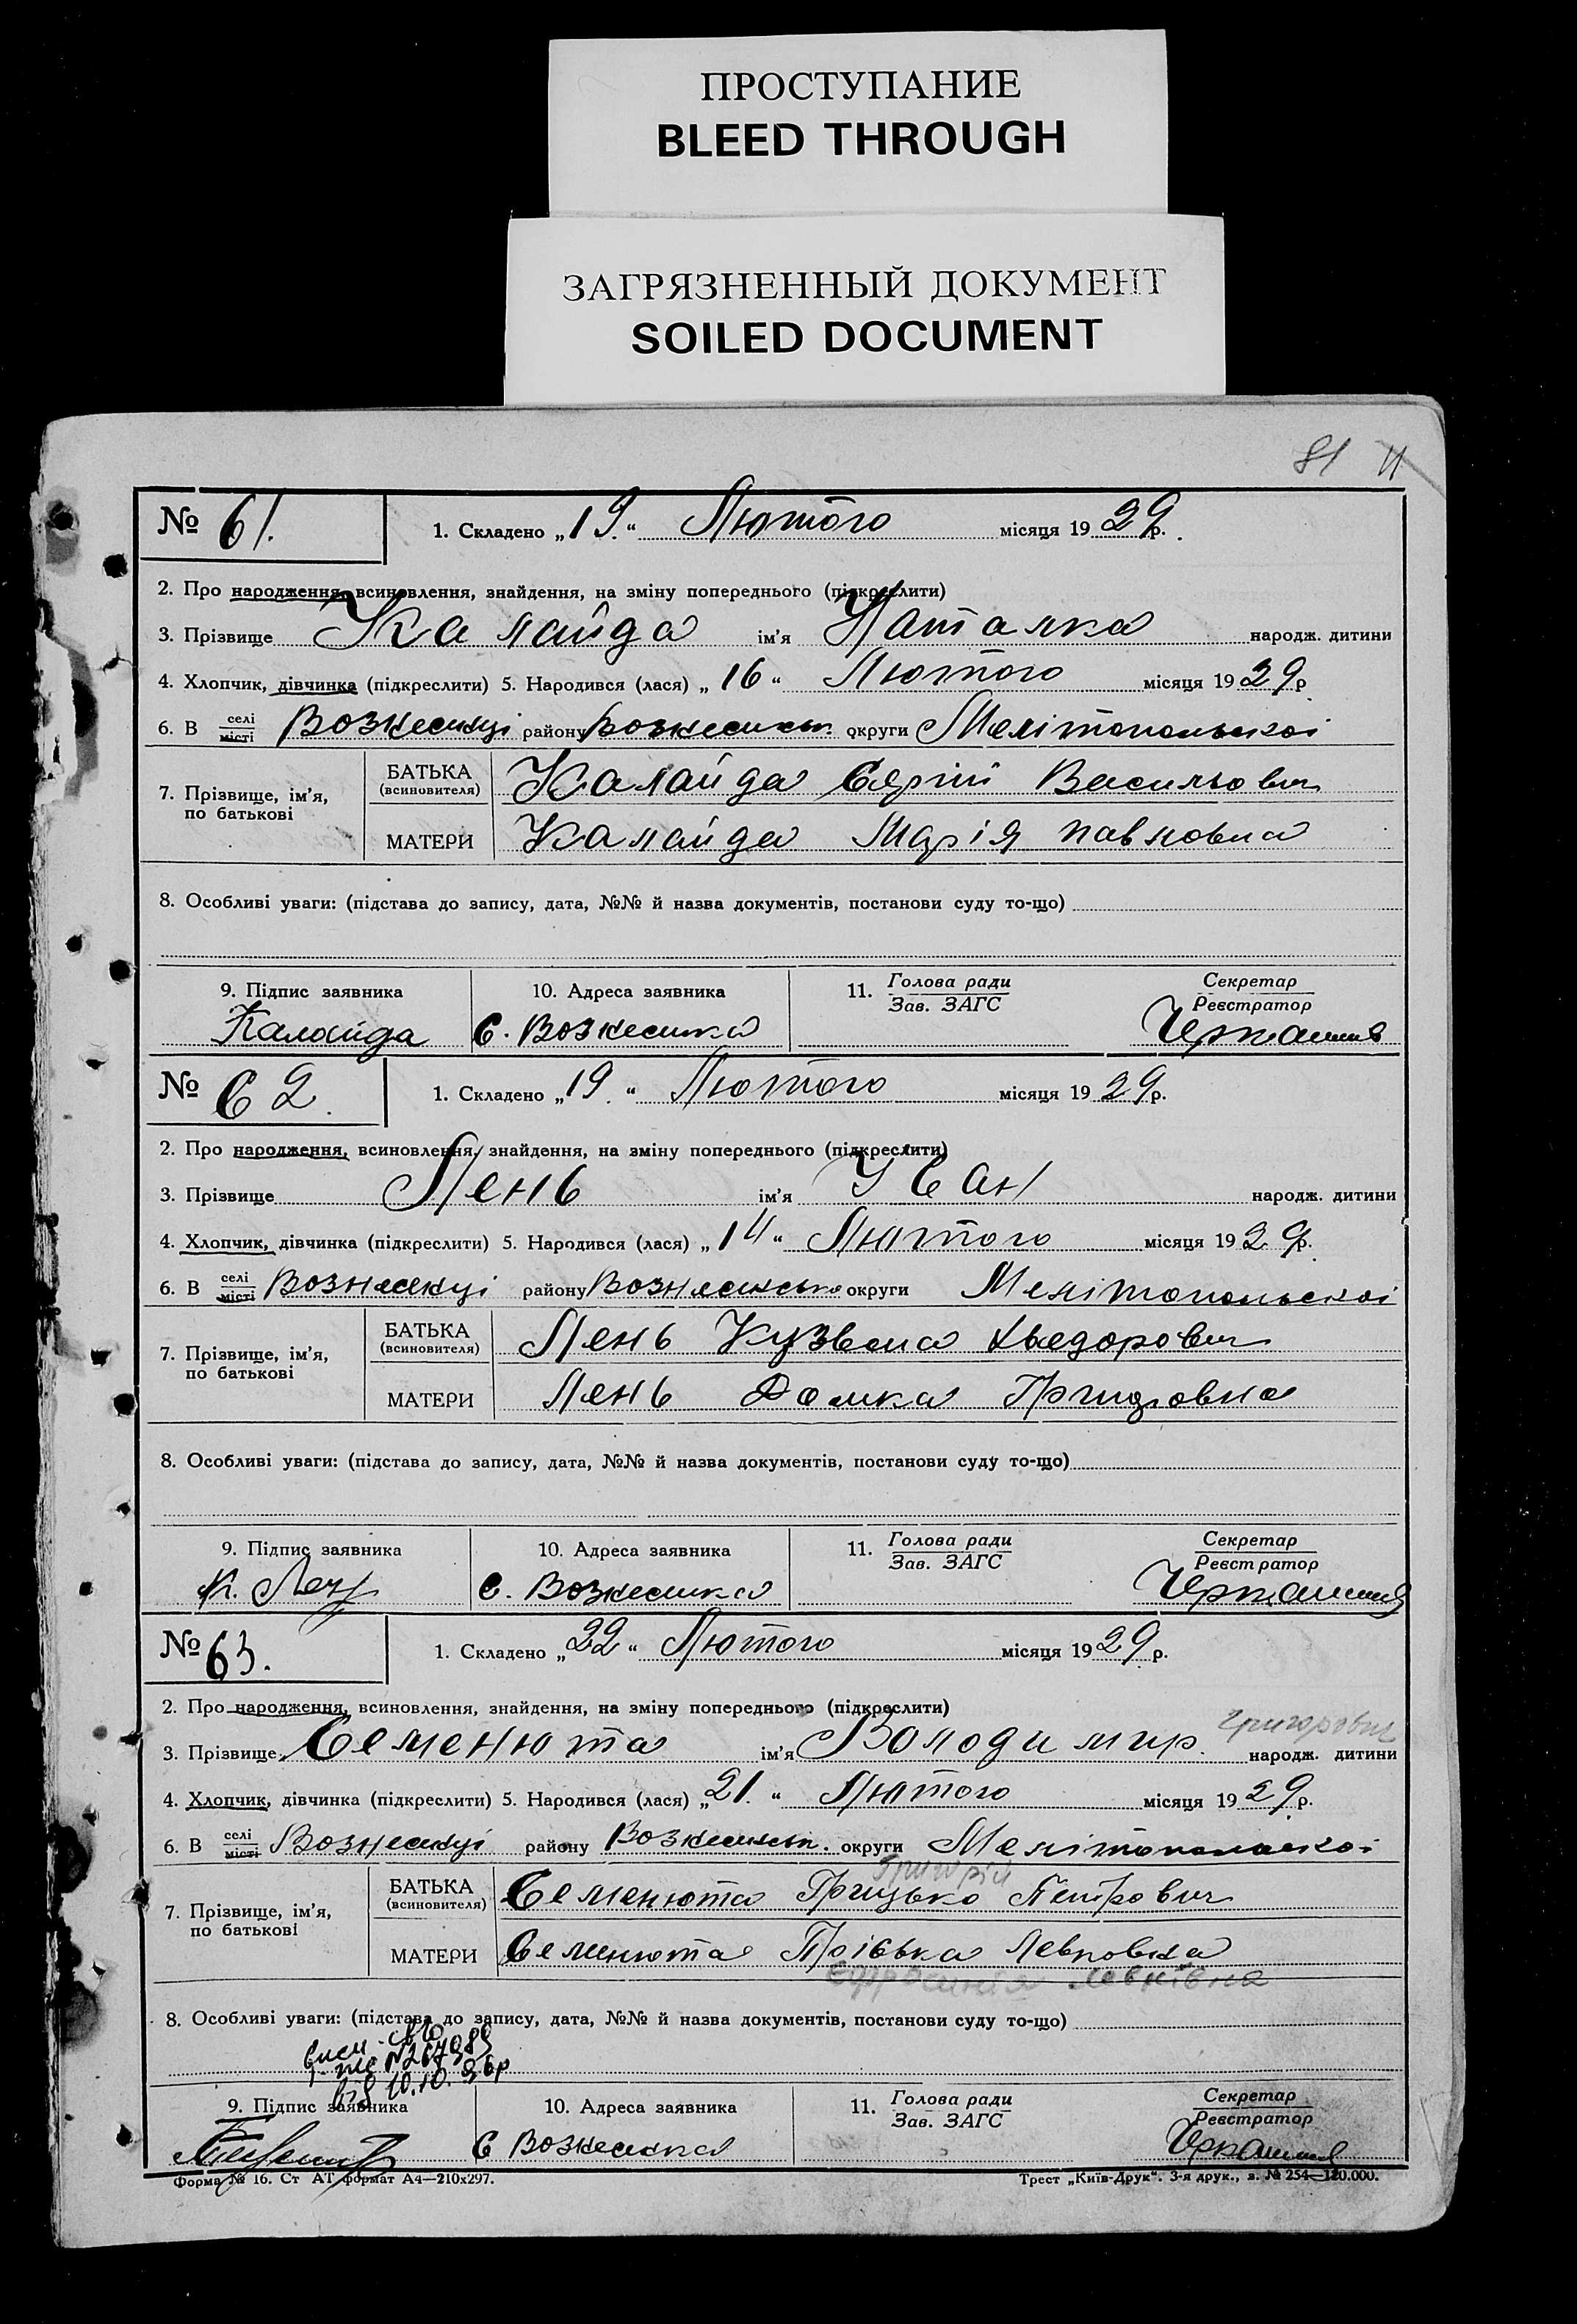 ПРОСТУПАНИЕ
BLEED THROUGH
ЗАГРЯЗНЕННЫЙ ДОКУМЕНТ
SOILED DOCUMENT
81
№ 61. 1. Складено „19.“ Лютого місяця 1929 р.
2. Про народження, всиновлення, знайдення, на зміну попереднього (підкреслити)
3. Прізвище Калайда ім'я Наталка народж. дитини
4. Хлопчик, дівчинка (підкреслити) 5. Народився (лася) „16“ Лютого місяця 1929 р
6. В селі місті Вознесенці району Вознесенськ. округи Мелітопольскоі
7. Прізвище, ім'я, по батькові
БАТЬКА (всиновителя) Калайда Сергій Васильович
МАТЕРИ Калайда Марія Павловна
8. Особливі уваги: (підстава до запису, дата, №№ й назва документів, постанови суду то-що)
9. Підпис заявника 10. Адреса заявника 11. Голова ради Зав. ЗАГС Секретар Реєстратор
Калайда С. Вознесенка
№ 62. 1. Складено „19.“ Лютого місяця 1929 р.
2. Про народження, всиновлення, знайдення, на зміну попереднього (підкреслити)
3. Прізвище Лень ім'я Іван народж. дитини
4. Хлопчик, дівчинка (підкреслити) 5. Народився (лася) „14“ Лютого місяця 1929 р.
6. В селі місті Вознесенці району Вознесенсько округи Мелітопольскоі
7. Прізвище, ім'я, по батькові
БАТЬКА (всиновителя) Лень Федорович
МАТЕРИ Лень Домка
8. Особливі уваги: (підстава до запису, дата, №№ й назва документів, постанови суду то-що)
9. Підпис заявника 10. Адреса заявника 11. Голова ради Зав. ЗАГС Секретар Реєстратор
К. С. Вознесенка
№ 63. 1. Складено „22“ Лютого місяця 1929 р.
2. Про народження, всиновлення, знайдення, на зміну попереднього (підкреслити)
Григорович
3. Прізвище Семенюта ім'я Володимир. народж. дитини
4. Хлопчик, дівчинка (підкреслити) 5. Народився (лася) „21.“ Лютого місяця 1929 р.
6. В селі місті Вознесенці району Вознесенськ. округи Мелітопольскоі
Григорій
7. Прізвище, ім'я, по батькові
БАТЬКА (всиновителя) Семенюта Грицько Петрович
МАТЕРИ Семенюта Левковна
Левківна
8. Особливі уваги: (підстава до запису, дата, №№ й назва документів, постанови суду то-що)
від 10.10.
9. Підпис заявника 10. Адреса заявника 11. Голова ради Зав. ЗАГС Секретар Реєстратор
С Вознесенка
Форма № 16. Ст АТ формат А4—210х297. Трест „Київ-Друк“. 3-я друк., з. № 254—120.000.